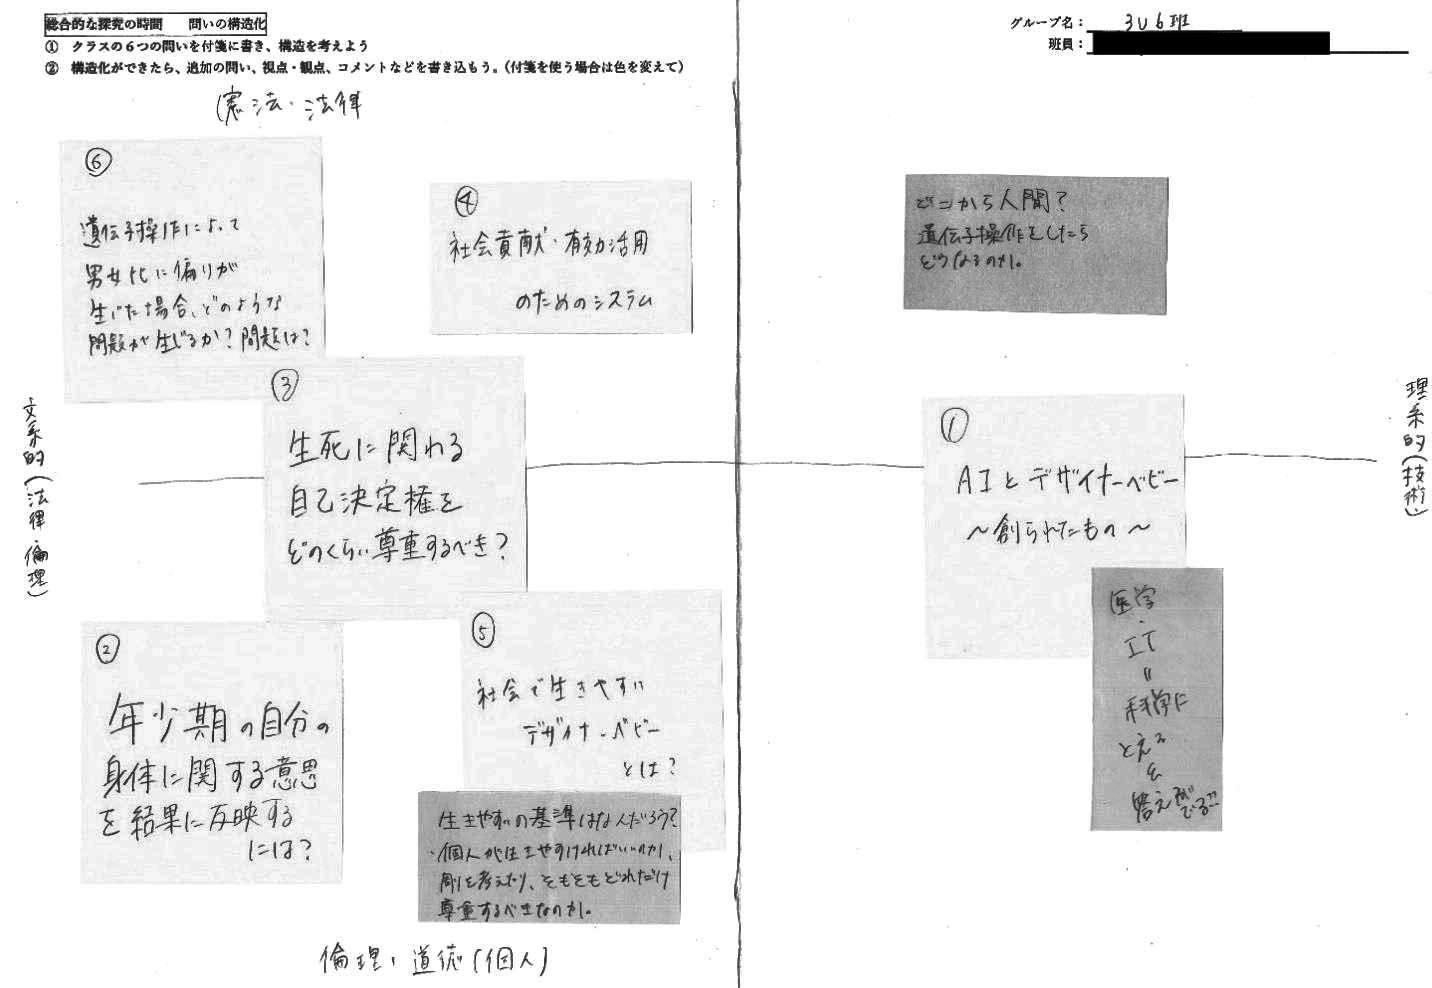 総合的な探究の時間　　問いの構造化
① クラスの６つの問いを付箋に書き、構造を考えよう
② 構造化ができたら、追加の問い、視点・観点、コメントなどを書き込もう。（付箋を使う場合は色を変えて）
グループ名： 3U6班
班員：
憲法・法律
⑥
遺伝子操作によって
男女比に偏りが
生じた場合、どのような
問題が生じるか？問題は？
④
社会貢献・有効活用
のためのシステム
どこから人間？
遺伝子操作をしたら
どうなるのか。
③
生死に関わる
自己決定権を
どのくらい尊重するべき？
文系的（法律・倫理）
理系的（技術）
①
AIとデザイナーベビー
〜創られたもの〜
医学
・
IT
〃
科学に
とえる
答えがでる!!
②
年少期の自分の
身体に関する意思
を結果に反映する
には？
⑤
社会で生きやすい
デザイナーベビー
とは？
生きやすいの基準はなんだろう？
・個人が生きやすければいいのか、
周りを考えたり、そもそもどれだけ
尊重するべきなのか。
倫理・道徳（個人）